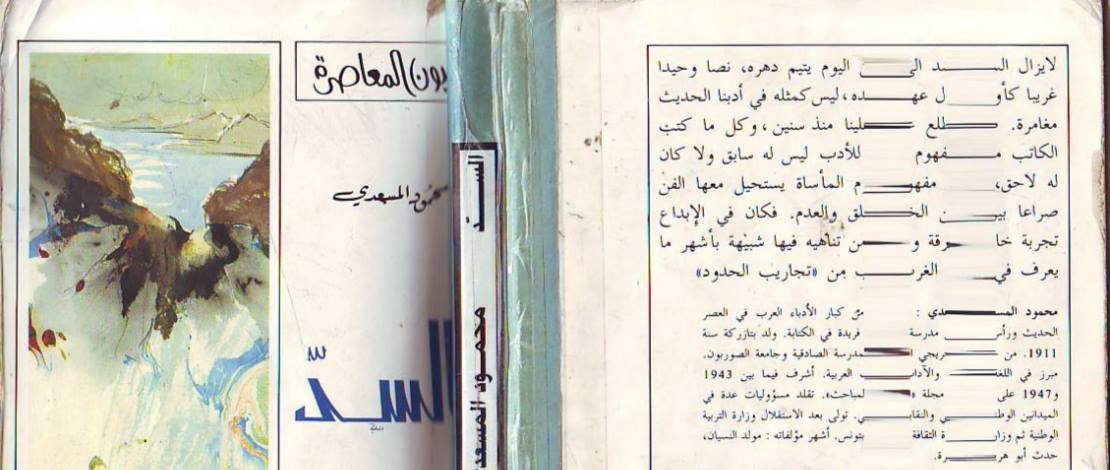 لايزال السد الى اليوم يتيم دهره، نصا وحيدا
غريبا كأول عهده، ليس كمثله في أدبنا الحديث
مغامرة. طلع علينا منذ سنين، وكل ما كتب
الكاتب مفهوم للأدب ليس له سابق ولا كان
له لاحق، مفهوم المأساة يستحيل معها الفن
صراعا بين الخلق والعدم. فكان في الإبداع
تجربة خارقة و من تناهيه فيها شبيهة بأشهر ما
يعرف في الغرب من «تجاريب الحدود»
محمود المسعدي : من كبار الأدباء العرب في العصر
الحديث ورأس مدرسة فريدة في الكتابة. ولد بتازركة سنة
1911. من خريجي المدرسة الصادقية وجامعة الصوربون.
مبرز في اللغة والآداب العربية. أشرف فيما بين 1943
و1947 على مجلة «المباحث». تقلد مسؤوليات عدة في
الميدانين الوطني والنقابي. تولى بعد الاستقلال وزارة التربية
الوطنية ثم وزارة الثقافة بتونس. أشهر مؤلفاته : مولد النسيان،
حدث أبو هريرة.
السد
محمود المسعدي
يون المعاصرة
محمود المسعدي
السدّ